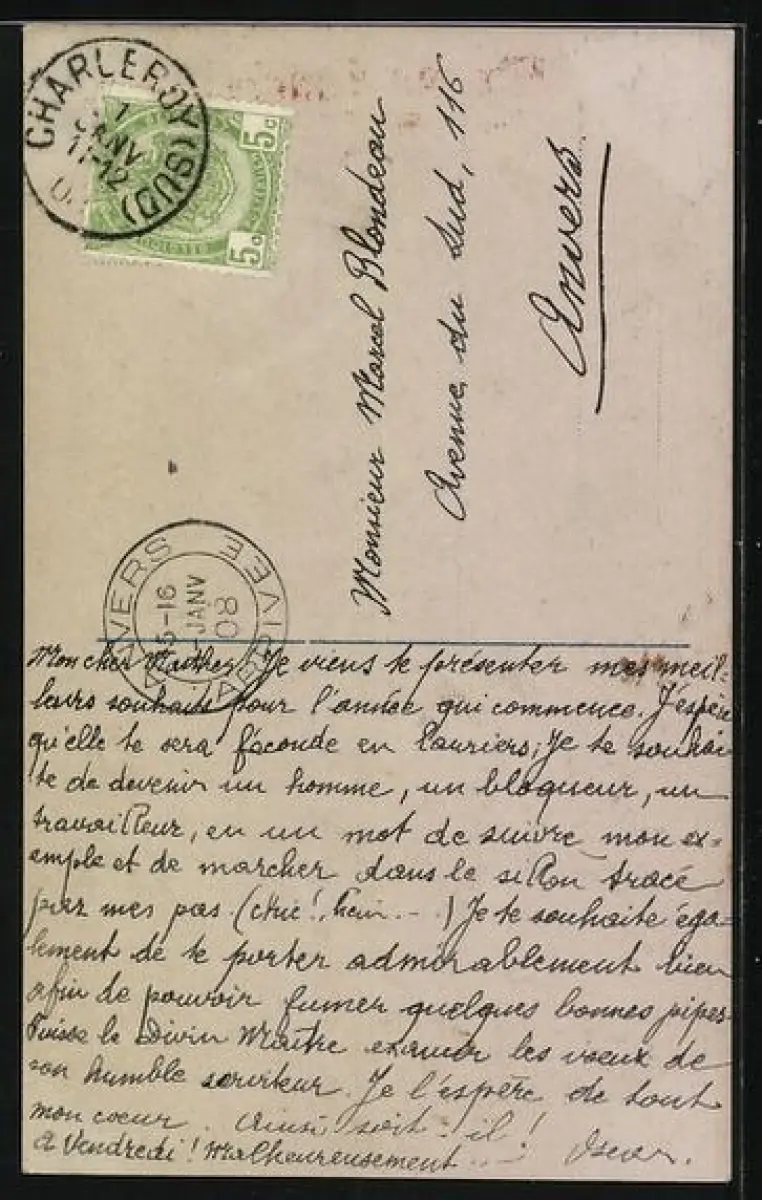 CHARLEROY (SUD)
1
JANV
11-12
5c
5c
Monsieur Marcel Blondeau
Avenue du Sud, 116
Anvers
ANVERS ARRIVEE
15-16
JANV
08
Mon cher Je viens te présenter mes meil-
leurs souhaits pour l'année qui commence. J'espère
qu'elle te sera féconde en lauriers; Je te souhai
te de devenir un homme, un bloqueur, un
travailleur, en un mot de suivre mon ex=
emple et de marcher dans le sillon tracé
par mes pas. (chic!, hein...) Je te souhaite éga-
lement de te porter admirablement bien
afin de pouvoir fumer quelques bonnes pipes.
Puisse le Divin Maître exaucer les voeux de
son humble serviteur. Je l'espère de tout
mon coeur. Ainsi soit-il!
A Vendredi! Malheureusement... Oscar.